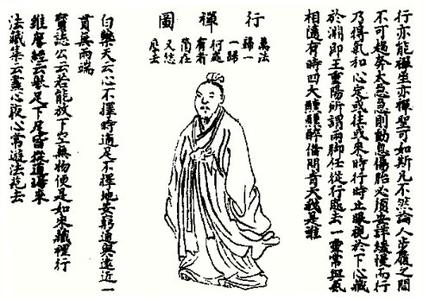 行禪圖
行亦能禪坐亦禪聖可如斯凡不然論人步履之間
不可趨奔太急急則動息傷胎必須安詳緩慢而行
乃得氣和心定或往或來時行時止眼視於下心藏
於淵即王重陽所謂兩脚任從行處去一靈常與氣
相隨有時四大醺醺醉借問青天我是誰
萬法歸一
一歸何處
有者箇在
又恁麽去
白樂天云心不擇時適足不擇地安窮通與遠近一
貫無兩端
寶誌公云若能放下空無物便是如來藏裡行
維摩經云舉足下足皆從道場來
法藏集云晝心夜心常遊法苑去